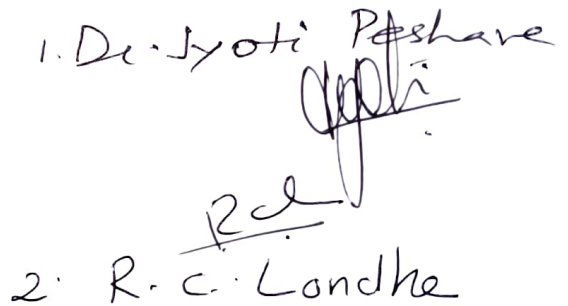 1. Dr. Jyoti Peshave
Jyoti
2. R. C. Londhe